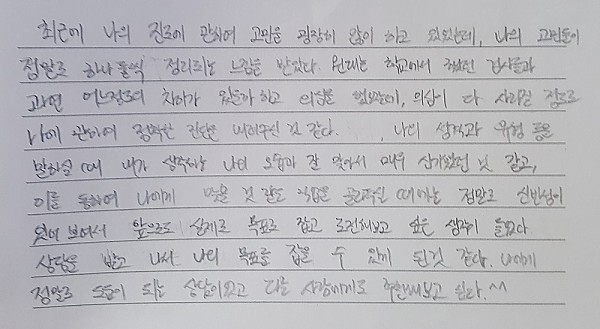 최근에 나의 진로에 관하여 고민을 굉장히 많이 하고 있었는데, 나의 고민들이
정말로 하나 둘씩 정리되는 느낌을 받았다. 원래는 학교에서 했었던 검사들과
과연 어느정도의 차이가 있을까 하고 의심을 했었는데, 의심이 다 사라질 정도로
나에 관하여 정확한 진단을 내려주신 것 같다. 나의 성격과 유형 등을
말하실 때 내가 생각하는 나의 모습과 잘 맞아서 매우 신기했던 것 같고,
이를 통하여 나에게 맞을 것 같은 직업을 골라주실 때에는 정말로 신빙성이
있어 보여서 앞으로 실제로 목표로 잡고 도전해보고 싶은 생각이 들었다.
상담을 받고 나서 나의 목표를 잡을 수 있게 된것 같다. 나에게
정말로 도움이 되는 상담이었고 다른 사람에게도 추천해보고 싶다.^^